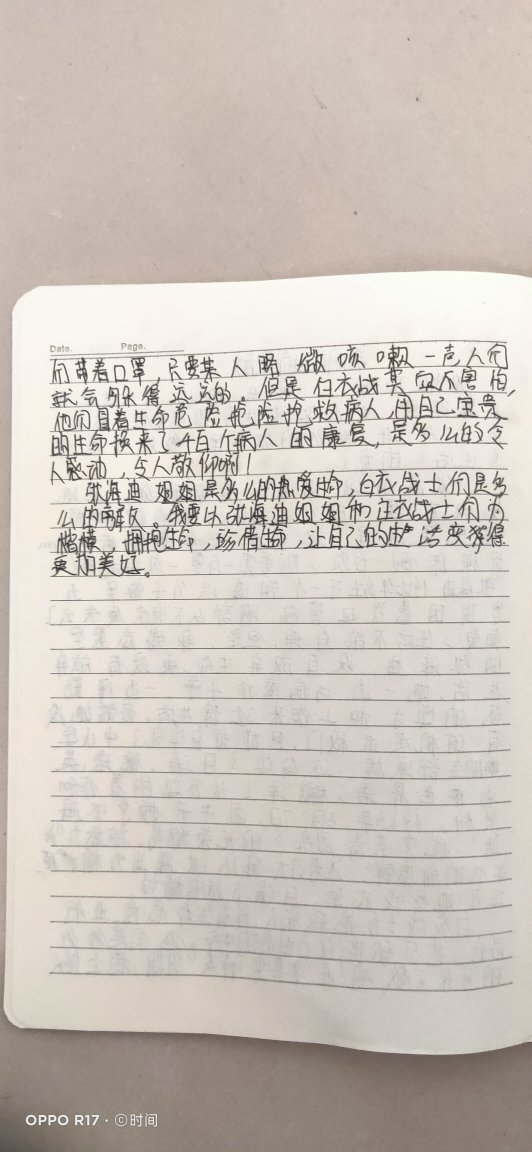 Date. Page.
们带着口罩 只要某人略微咳嗽一声人们
就会躲得远远的。但是白衣战其实不害怕,
他们冒着生命危险抢险抢救病人,用自己宝贵
的生命换来了千百个病人的康复,是多么的令
人感动,令人敬仰啊!
张海迪姐姐是多么的热爱生命,白衣战士们是多
么的。我要以张海迪姐姐和白衣战士们为
楷模,拥抱生命,珍惜生命,让自己的生活变得
更加美好。
OPPO R17 · ©时间